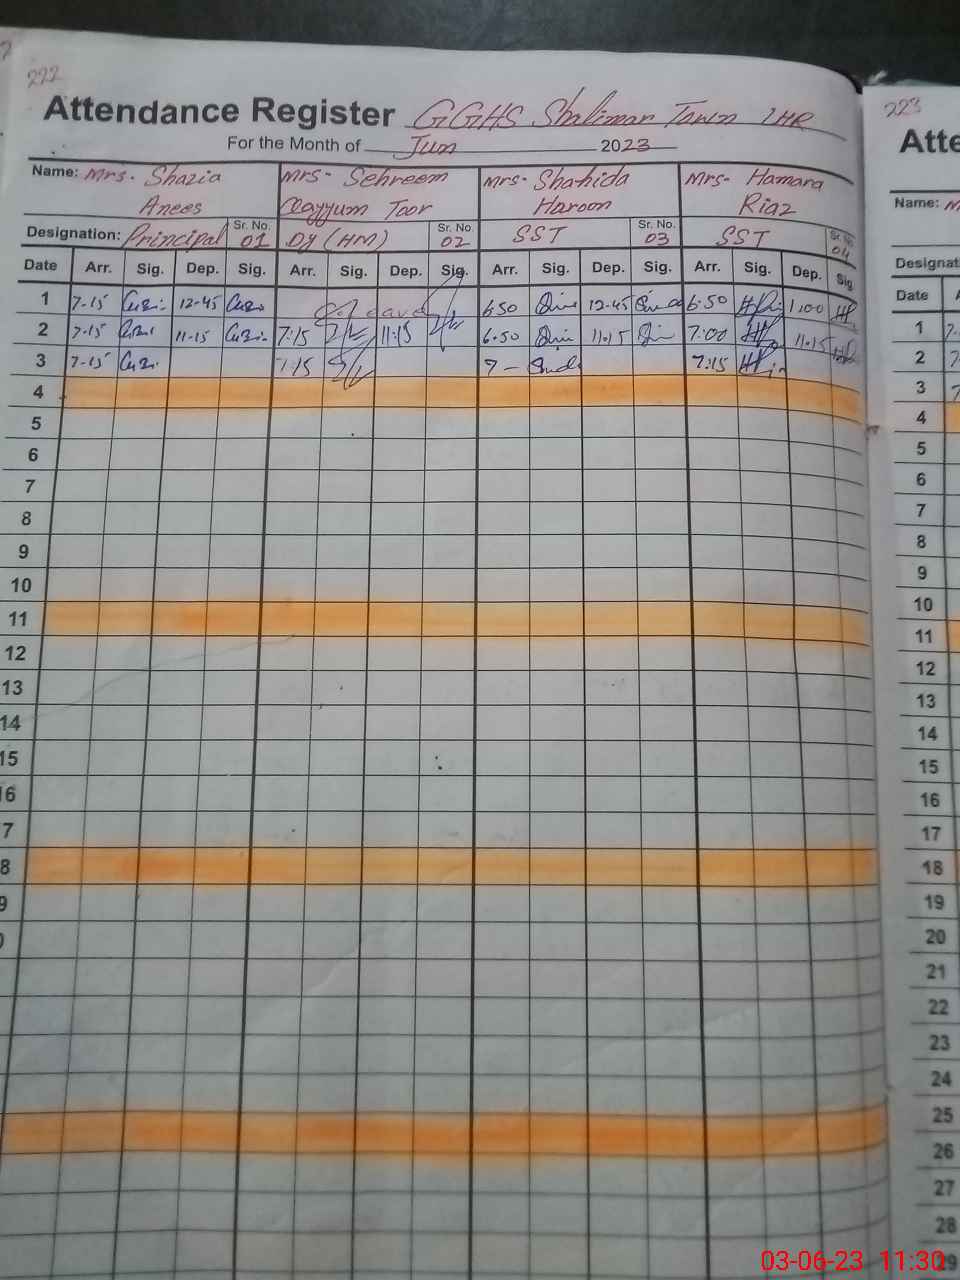 222
Attendance Register GGHS Shalimar Town LHR
For the Month of Jun 2023
Name: Mrs. Shazia Anees Mrs- Sehreem Qayyum Toor Mrs- Shahida Haroon Mrs- Hamara Riaz
Designation: Principal Sr. No. 01 Dy (HM) Sr. No. 02 SST Sr. No. 03 SST Sr. No. 04
Date Arr. Sig. Dep. Sig. Arr. Sig. Dep. Sig. Arr. Sig. Dep. Sig. Arr. Sig. Dep. Sig.
1 7-15 12-45 6.50 12-45 6:50 1:00
2 7-15 11-15 7:15 11:15 6.50 11.15 7:00 11:15
3 7-15 7:15 7- 7:15
4
5
6
7
8
9
10
11
12
13
14
15
16
7
8
9
0
223
Atte
Name: M
Designat
Date A
1 7
2 7
3 7
4
5
6
7
8
9
10
11
12
13
14
15
16
17
18
19
20
21
22
23
24
25
26
27
28
29
03-06-23 11:30